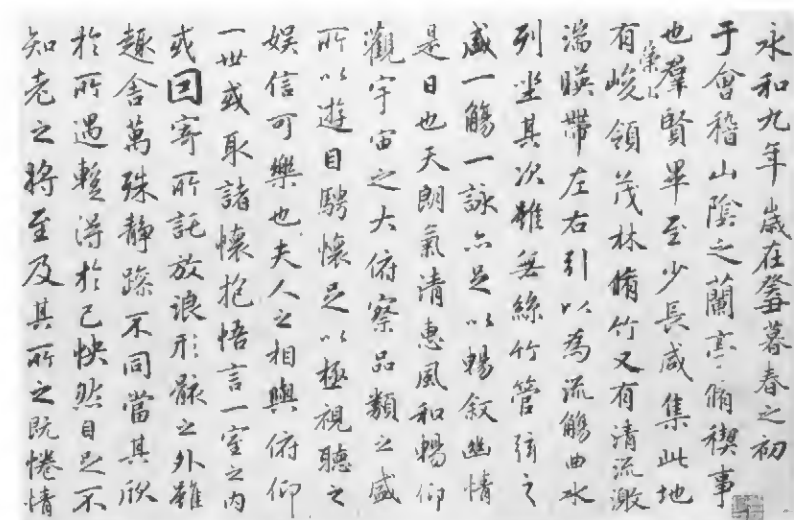 永和九年歲在癸丑暮春之初
于會稽山陰之蘭亭脩稧事
也羣賢畢至少長咸集此地
有崇山峻領茂林脩竹又有清流激
湍暎帶左右引以為流觴曲水
列坐其次雖無絲竹管弦之
盛一觴一詠亦足以暢叙幽情
是日也天朗氣清惠風和暢仰
觀宇宙之大俯察品類之盛
所以遊目騁懷足以極視聽之
娛信可樂也夫人之相與俯仰
一世或取諸懷抱悟言一室之內
或因寄所託放浪形骸之外雖
趣舍萬殊靜躁不同當其欣
於所遇蹔得於己快然自足不
知老之將至及其所之既惓情